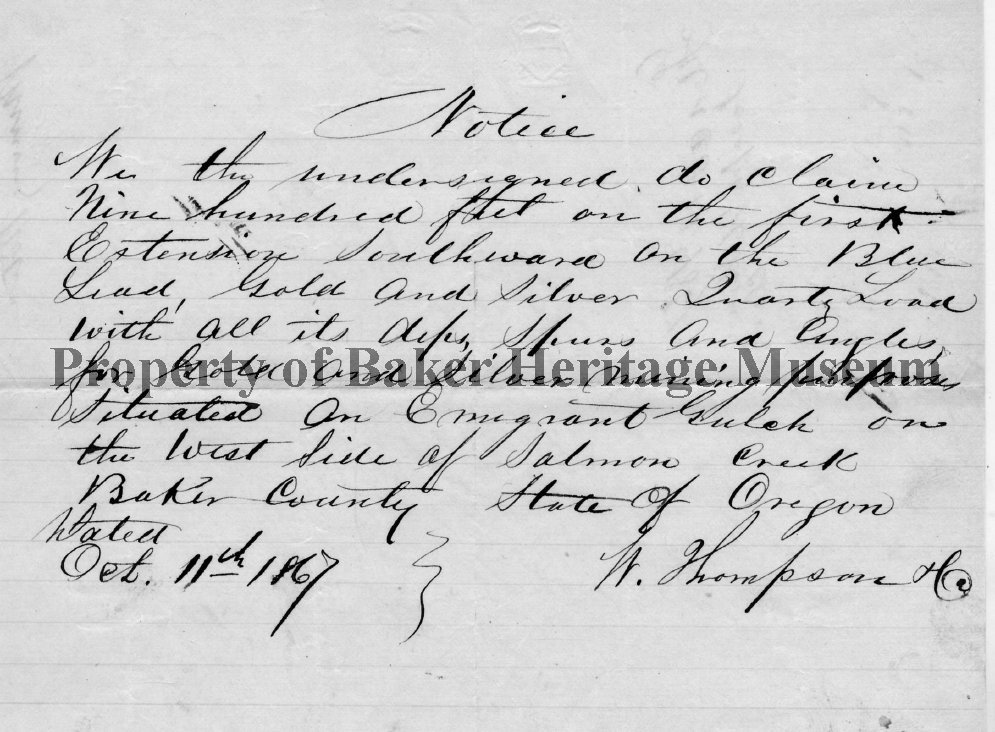 Notice
We the undersigned do claim
Nine hundred feet on the first
Extension Southward on the Blue
Lead, Gold and Silver Quartz Load
with all its dips, Spurs and Angles
Property of Baker Heritage Museum
for Gold and Silver mining purposes
Situated on Emigrant Gulch on
the West Side of Salmon Creek
Baker County State of Oregon
Dated
Oct. 11th 1867
W. Thompson & Co